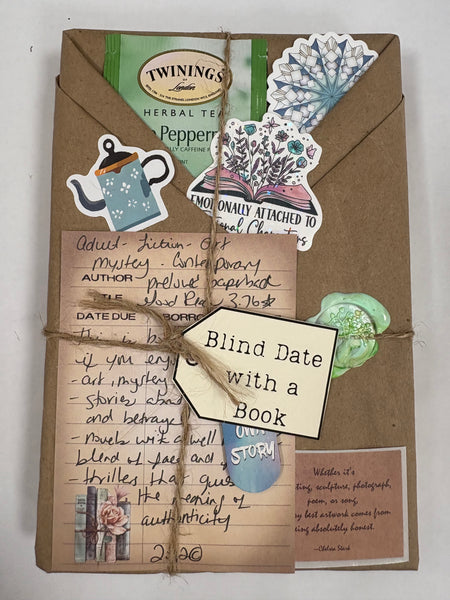 TWININGS
of London
HERBAL TEA
Pepperm
LLY CAFFEINE F
EMOTIONALLY ATTACHED TO
ional Characters
adult - fiction - art
mystery - contemporary
AUTHOR prelove paperback
TLE Good Rea 3.76
DATE DUE BORRO
this is
if you enj
- art, myster
- stories abou
and betray
- novels with a well
blend of fact and
- thrilles that ques
the meaning of
authenticity
Blind Date
with a
Book
OWN
STORY
Whether it's
ting, sculpture, photograph,
poem, or song,
y best artwork comes from
eing absolutely honest.